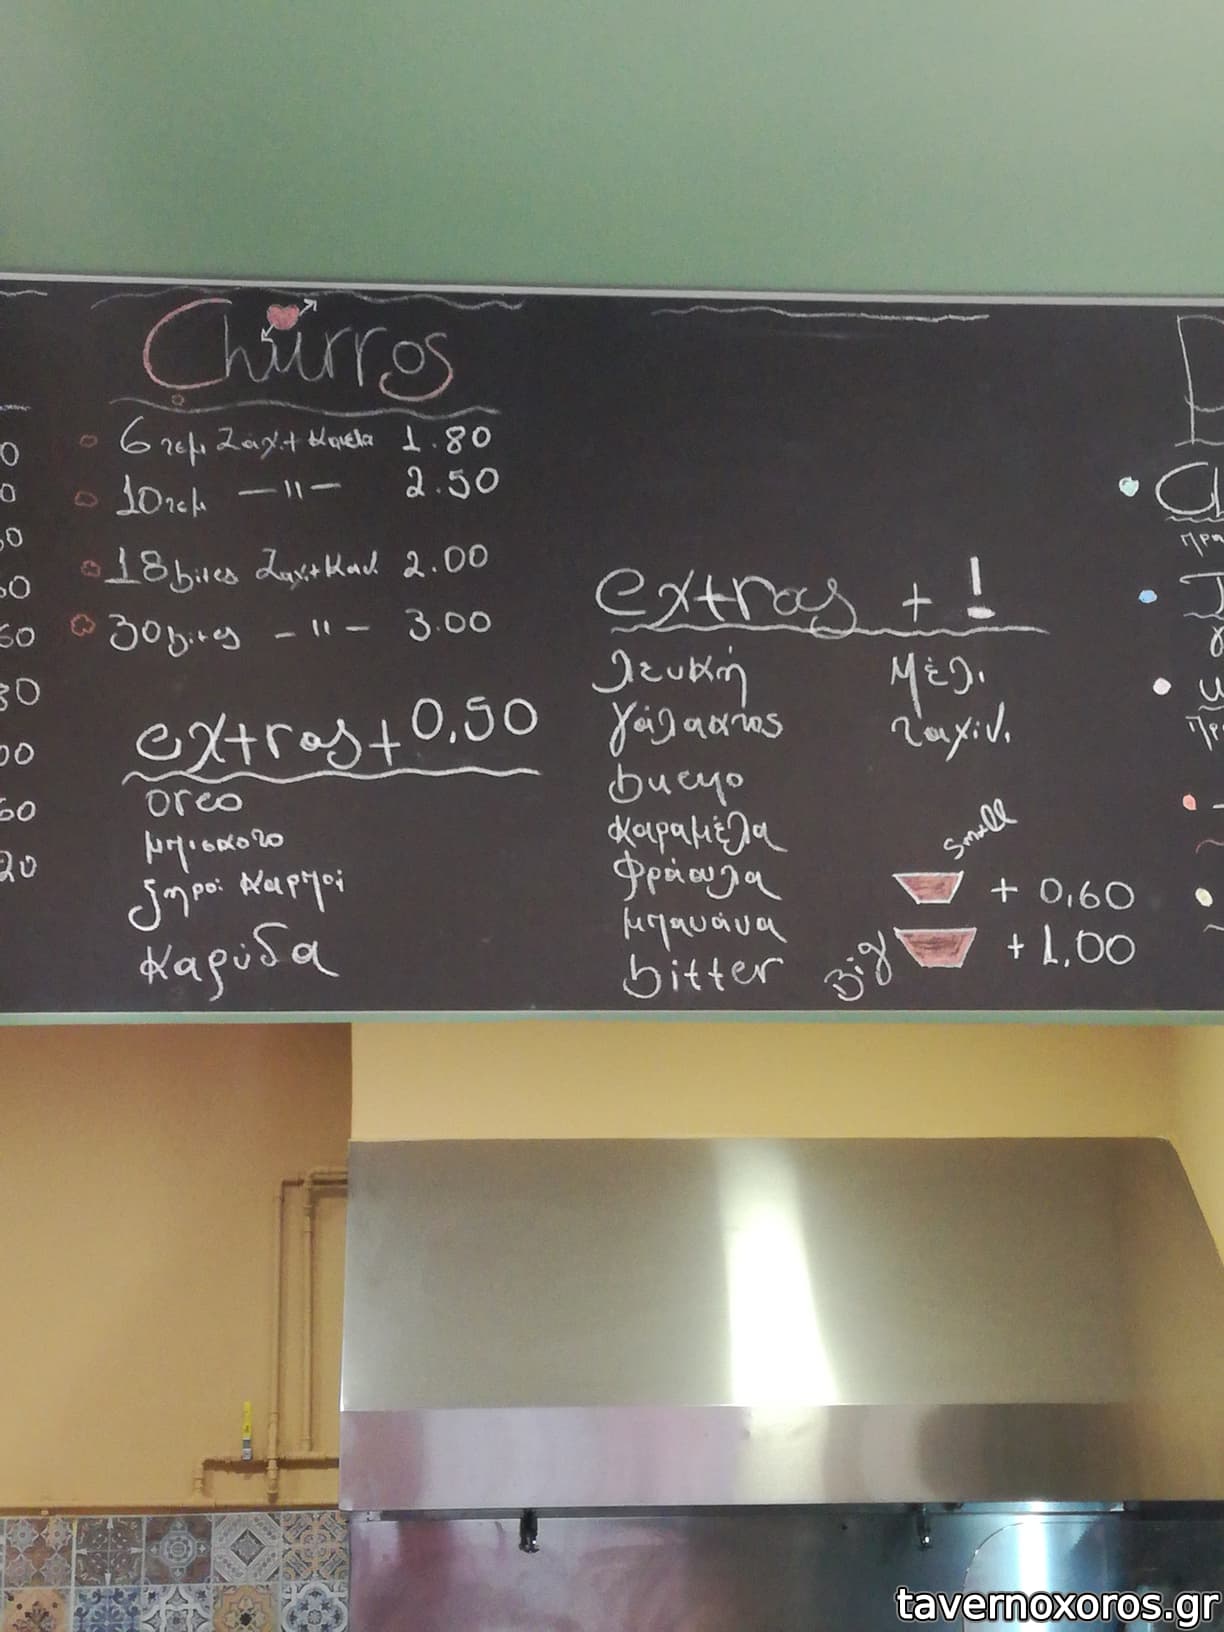 Churros
6 τεμ Ζάχ.+ Κανέλα 1.80
10 τεμ —"— 2.50
18 bites Ζαχ.+Καν. 2.00
30 bites —"— 3.00
extras + 0.50
oreo
μπισκότο
ξηροί καρποί
Καρύδα
extras + !
λευκή
γάλακτος
bueno
καραμέλα
φράουλα
μπανάνα
bitter
Μέλι
ταχίνι
small
+ 0,60
Big
+ 1,00
tavernoxoros.gr